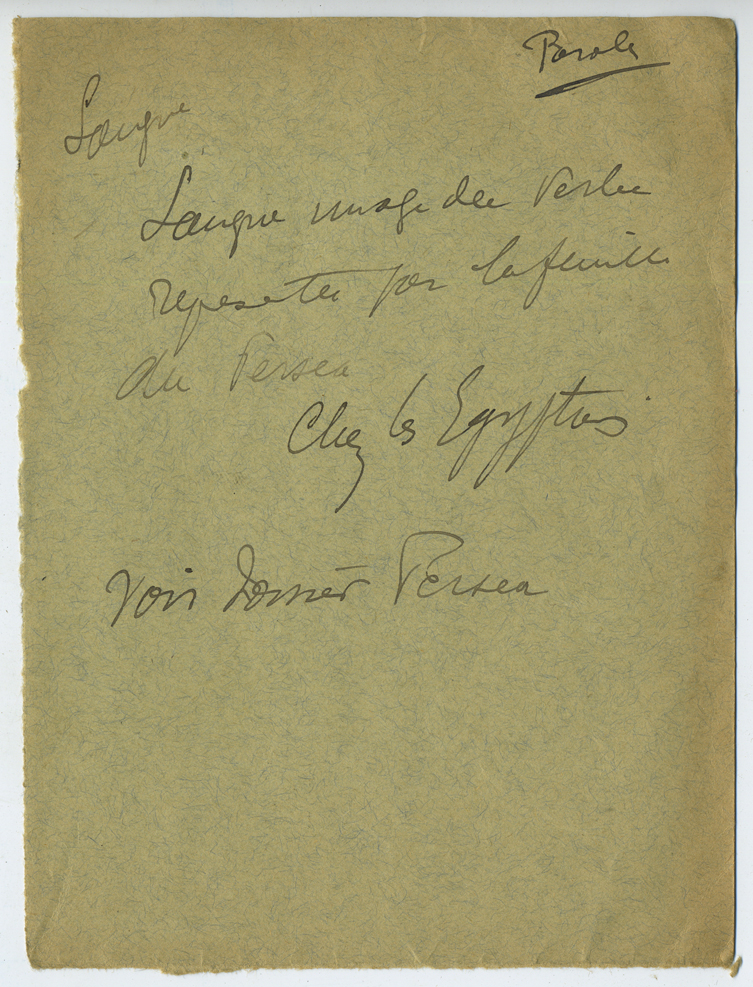 Parole
Langue
Langue image du Verbe
represetée par la feuille
du Persea
Chez les Egyptiens
Voir Dossier Persea